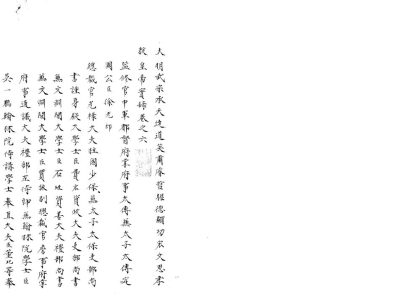 大明武宗承天達道英肅睿哲昭德顯功弘文思孝
毅皇帝實錄卷之六
監修官中軍都督府掌府事太傅兼太子太傅定
國公臣徐光祚
總裁官光祿大夫柱國少保兼太子太保吏部尚
書謹身殿大學士臣費宏資政大夫吏部尚書
兼文淵閣大學士臣石珤資善大夫禮部尚書
兼文淵閣大學士臣賈詠副總裁官詹事府掌
府事通議大夫禮部左侍郎兼翰林院學士臣
吳一鵬翰林院侍講學士奉直大夫臣董玘等奉